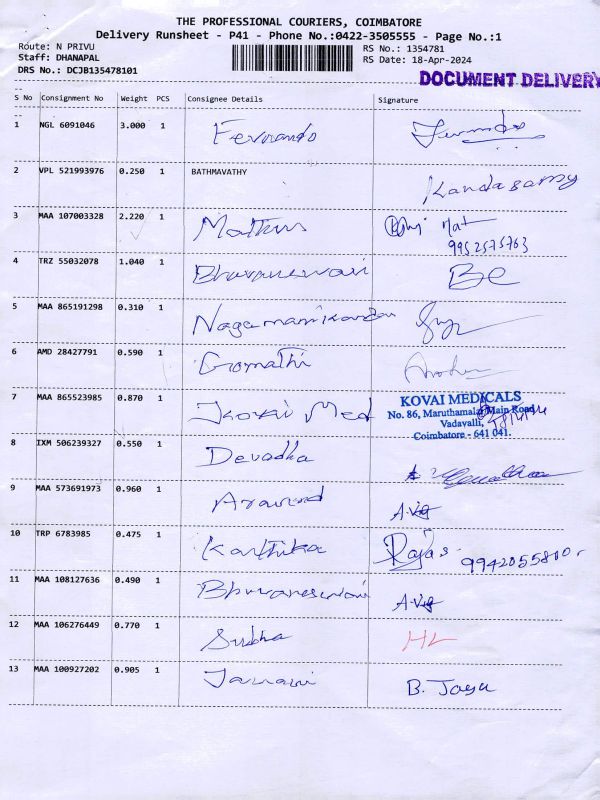 THE PROFESSIONAL COURIERS, COIMBATORE
Delivery Runsheet - P41 - Phone No.:0422-3505555 - Page No.:1
Route: N PRIVU RS No.: 1354781
Staff: DHANAPAL RS Date: 18-Apr-2024
DRS No.: DCJB135478101
DOCUMENT DELIVERY
S No Consignment No Weight PCS Consignee Details Signature
1 NGL 6091046 3.000 1 Fernando Fernando
2 VPL 521993976 0.250 1 BATHMAVATHY Kandasamy
3 MAA 107003328 2.220 1 Mathus
9952575763
4 TRZ 55032078 1.040 1 Bhuvaneswari BC
5 MAA 865191298 0.310 1 Nagamanikandan
6 AMD 28427791 0.590 1 Gomathi
7 MAA 865523985 0.870 1 Kovai Med KOVAI MEDICALS
No. 86, Maruthamalai Main Road,
Vadavalli,
Coimbatore - 641 041.
8 IXM 506239327 0.550 1 Devadha
9 MAA 573691973 0.960 1 Aravind A.Vig
10 TRP 6783985 0.475 1 Karthika Rajas 9942055800
11 MAA 108127636 0.490 1 Bhuvaneswari A.Vig
12 MAA 106276449 0.770 1 Subha HL
13 MAA 100927202 0.905 1 Janani B. Jaya